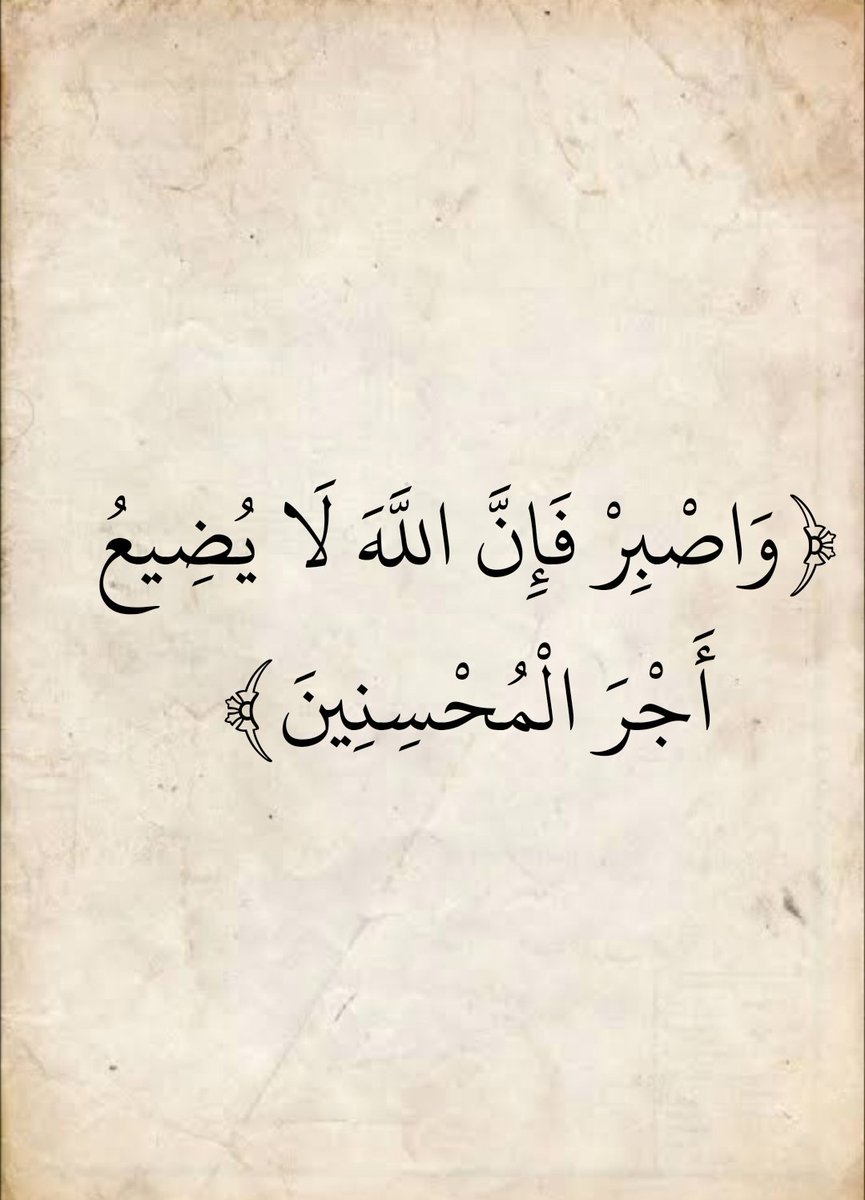 ﴿وَاصْبِرْ فَإِنَّ اللَّهَ لَا يُضِيعُ
أَجْرَ الْمُحْسِنِينَ﴾